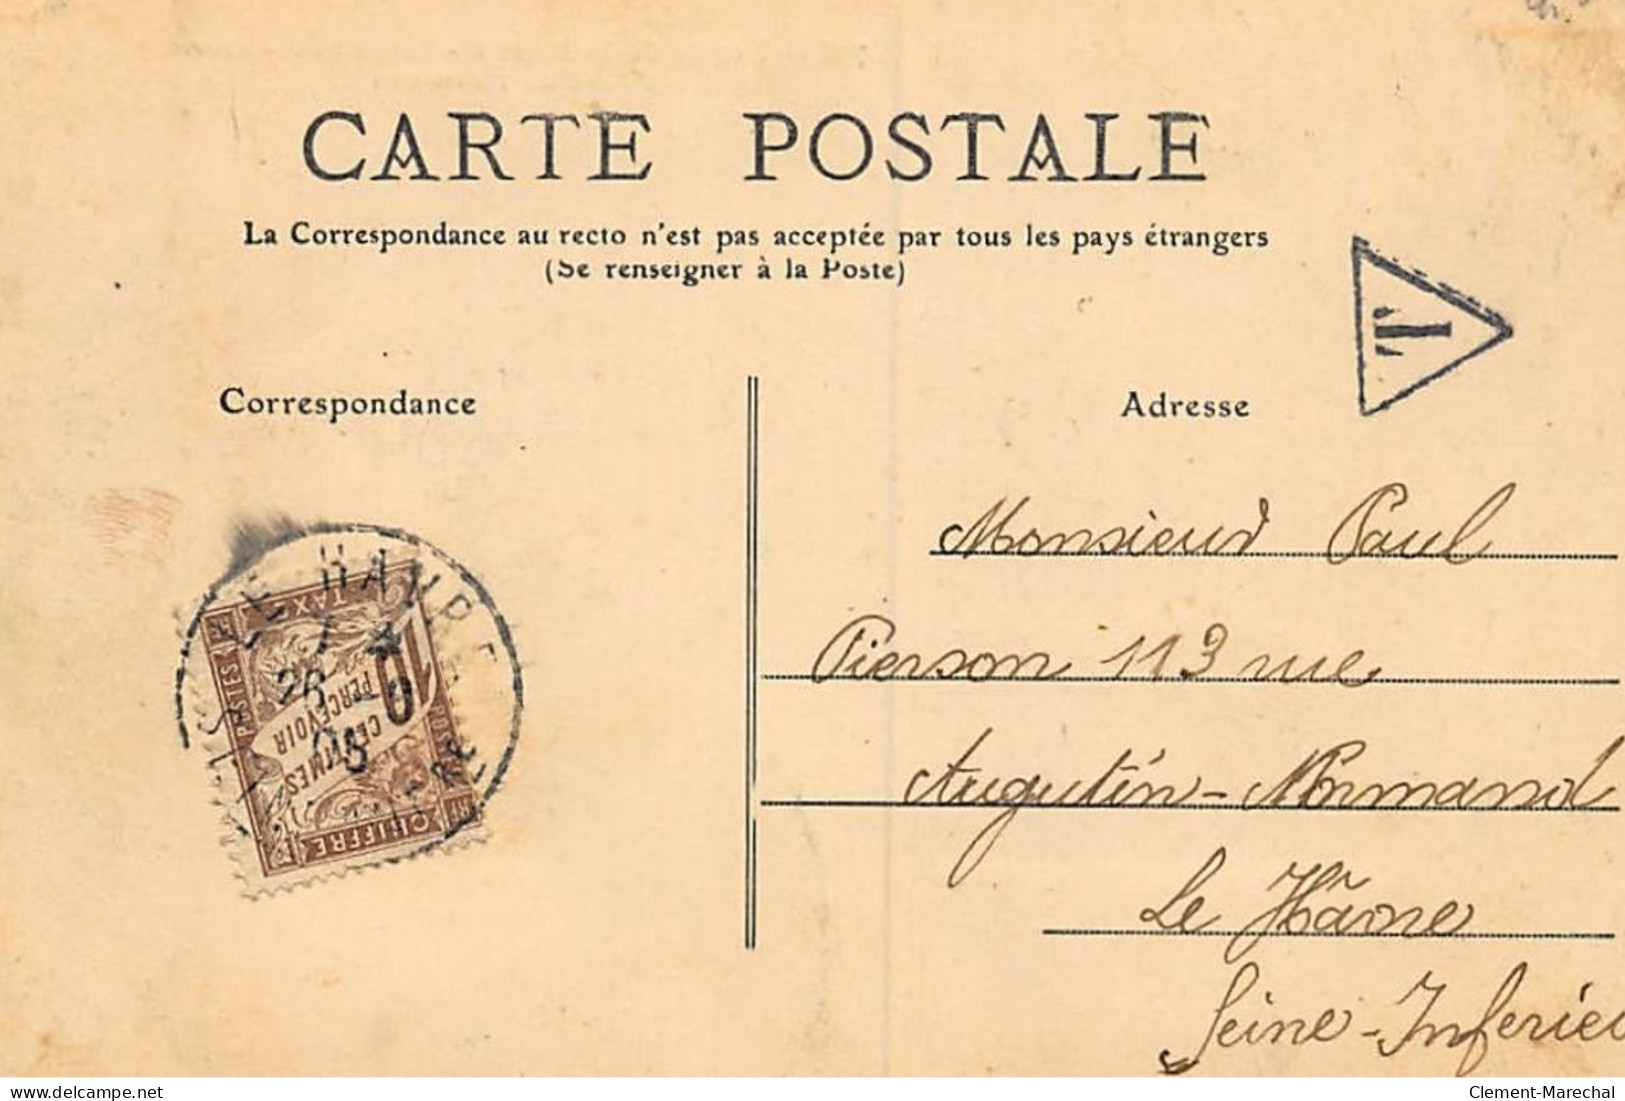 CARTE POSTALE
La Correspondance au recto n'est pas acceptée par tous les pays étrangers
(Se renseigner à la Poste)
T
Correspondance
Adresse
Monsieur Paul
Pierson 113 rue
Augutin-Normand
Le Hâvre
Seine-Inferieu
LE HAVRE
26
POSTES
TAX
10
CENTIMES
PERCEVOIR
CHIFFRE
delcampe.net
Clement-Marechal